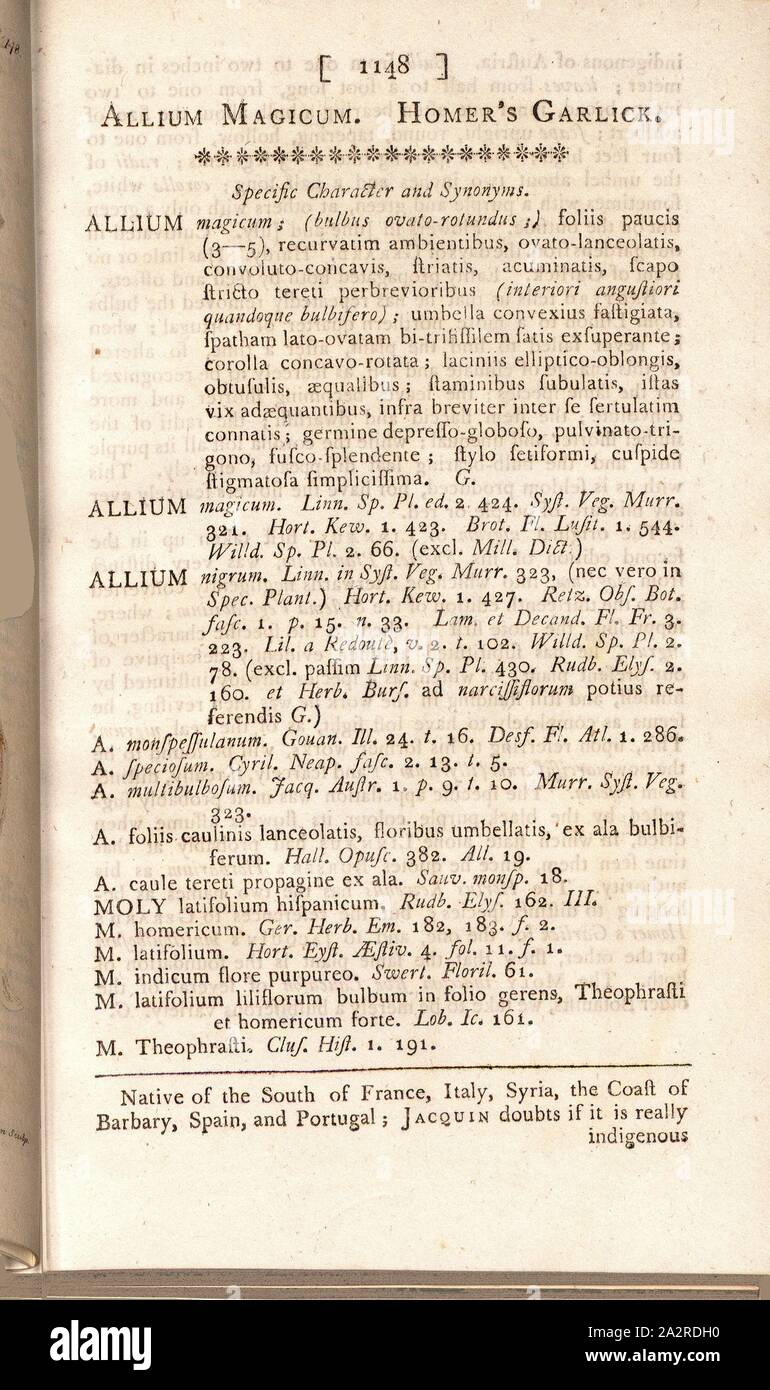 [ 1148 ]
ALLIUM MAGICUM. HOMER'S GARLICK.
Specific Character and Synonyms.
ALLIUM magicum; (bulbus ovato-rotundus;) foliis paucis
(3—5), recurvatim ambientibus, ovato-lanceolatis,
convoluto-concavis, ſtriatis, acuminatis, ſcapo
ſtricto tereti perbrevioribus (interiori anguſtiori
quandoque bulbifero); umbella convexius faſtigiata,
ſpatham lato-ovatam bi-trifiſſilem ſatis exſuperante;
corolla concavo-rotata; laciniis elliptico-oblongis,
obtuſulis, æqualibus; ſtaminibus ſubulatis, iſtas
vix adæquantibus, infra breviter inter ſe ſertulatim
connatis; germine depreſſo-globoſo, pulvinato-tri-
gono, fuſco-ſplendente; ſtylo ſetiformi, cuſpide
ſtigmatoſa ſimpliciſſima. G.
ALLIUM magicum. Linn. Sp. Pl. ed. 2. 424. Syſt. Veg. Murr.
321. Hort. Kew. 1. 423. Brot. Fl. Luſit. 1. 544.
Willd. Sp. Pl. 2. 66. (excl. Mill. Dict.)
ALLIUM nigrum. Linn. in Syſt. Veg. Murr. 323, (nec vero in
Spec. Plant.) Hort. Kew. 1. 427. Retz. Obſ. Bot.
faſc. 1. p. 15. n. 33. Lam. et Decand. Fl. Fr. 3.
223. Lil. a Redouté, v. 2. t. 102. Willd. Sp. Pl. 2.
78. (excl. paſſim Linn. Sp. Pl. 430. Rudb. Elyſ. 2.
160. et Herb. Burſ. ad narciſſiflorum potius re-
ferendis G.)
A. monſpeſſulanum. Gouan. Ill. 24. t. 16. Desf. Fl. Atl. 1. 286.
A. ſpecioſum. Cyril. Neap. faſc. 2. 13. t. 5.
A. multibulboſum. Jacq. Auſtr. 1. p. 9. t. 10. Murr. Syſt. Veg.
323.
A. foliis caulinis lanceolatis, floribus umbellatis, ex ala bulbi-
ferum. Hall. Opuſc. 382. All. 19.
A. caule tereti propagine ex ala. Sauv. monſp. 18.
MOLY latifolium hiſpanicum. Rudb. Elyſ. 162. III.
M. homericum. Ger. Herb. Em. 182, 183. f. 2.
M. latifolium. Hort. Eyſt. Æſtiv. 4. fol. 11. f. 1.
M. indicum flore purpureo. Swert. Floril. 61.
M. latifolium liliflorum bulbum in folio gerens, Theophraſti
et homericum forte. Lob. Ic. 161.
M. Theophraſti. Cluſ. Hiſt. 1. 191.
Native of the South of France, Italy, Syria, the Coaſt of
Barbary, Spain, and Portugal; JACQUIN doubts if it is really
indigenous
alamy
Image ID: 2A2RDH0
www.alamy.com